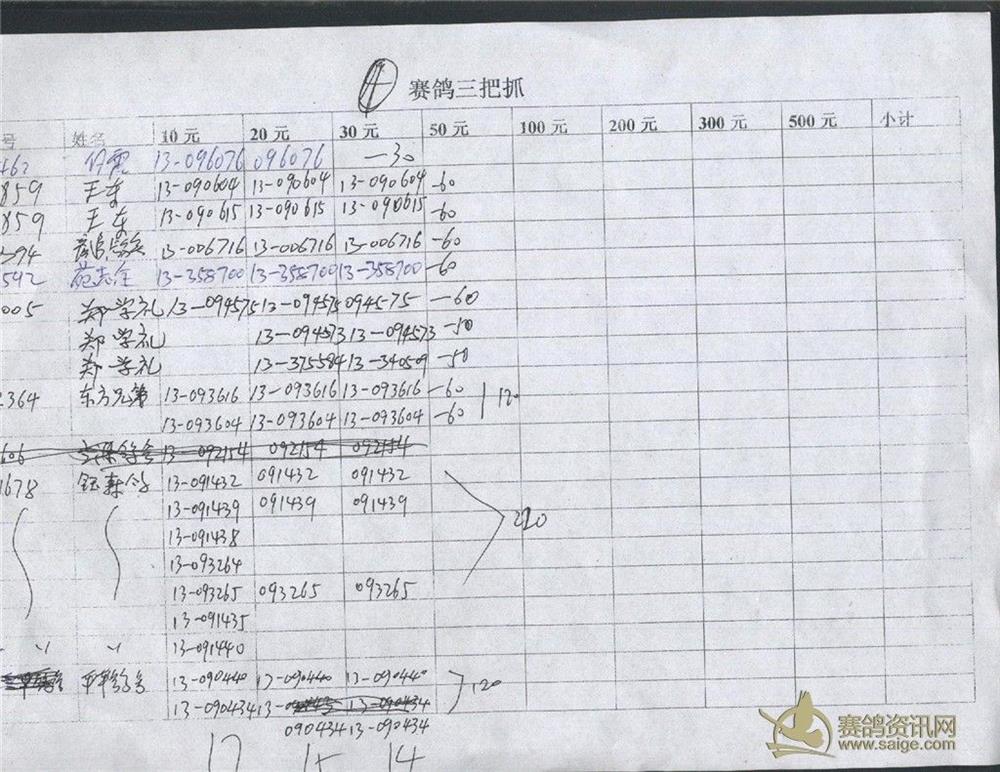 赛鸽三把抓
号 姓名 10元 20元 30元 50元 100元 200元 300元 500元 小计
462 13-096076 096076 -30
859 王车 13-090604 13-090604 13-090604 -60
859 王车 13-090615 13-090615 13-090615 -60
394 13-006716 13-006716 13-006716 -60
592 范志全 13-358700 13-358700 13-358700 -60
005 郑学礼 13-094575 13-094575 094575 -60
郑学礼 13-094573 13-094573 -50
郑学礼 13-375584 13-340509 -50
2364 东方兄弟 13-093616 13-093616 13-093616 -60 120
13-093604 13-093604 13-093604 -60
606 13-092154 092154 092154
1678 13-091432 091432 091432
13-091439 091439 091439
220
13-091438
13-093264
13-093265 093265 093265
13-091435
13-091440
13-090440 13-090440 13-090440 120
13-090434 13-
090434 13-090434
17 15 14
赛鸽资讯网
www.saige.com